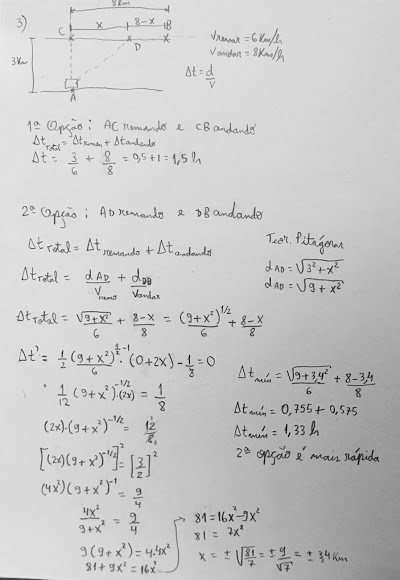 3)
8Km
x 8-x
C D B
3Km
A
Vremar = 6 Km/h
Vandar = 8 Km/h
Δt = d/v
1ª Opção: AC remando e CB andando
Δt_Total = Δtremar + Δtandando
Δt = 3/6 + 8/8 = 0,5 + 1 = 1,5 h
2ª Opção: AD remando e DB andando
Δt_Total = Δt_remando + Δt_andando
Δt_Total = d_AD/V_remo + d_DB/V_andar
Δt_Total = √(9+x²)/6 + (8-x)/8 = (9+x²)^(1/2)/6 + (8-x)/8
Δt' = 1/2 (9+x²)^(1/2-1)/6 · (0+2x) - 1/8 = 0
1/12 (9+x²)^(-1/2) · (2x) = 1/8
(2x)·(9+x²)^(-1/2) = 12/8
[(2x)(9+x²)^(-1/2)]² = [3/2]²
(4x²)(9+x²)^(-1) = 9/4
4x²/(9+x²) = 9/4
9(9+x²) = 4.4x²
81+9x² = 16x²
81 = 16x²-9x²
81 = 7x²
x = ±√(81/7) = ±9/√7 = ± 3,4 Km
Teor. Pitágoras
d_AD = √(3²+x²)
d_AD = √(9+x²)
Δt_mín = √(9+3,4²)/6 + (8-3,4)/8
Δt_mín = 0,755 + 0,575
Δt_mín = 1,33 h
2ª opção é mais rápida